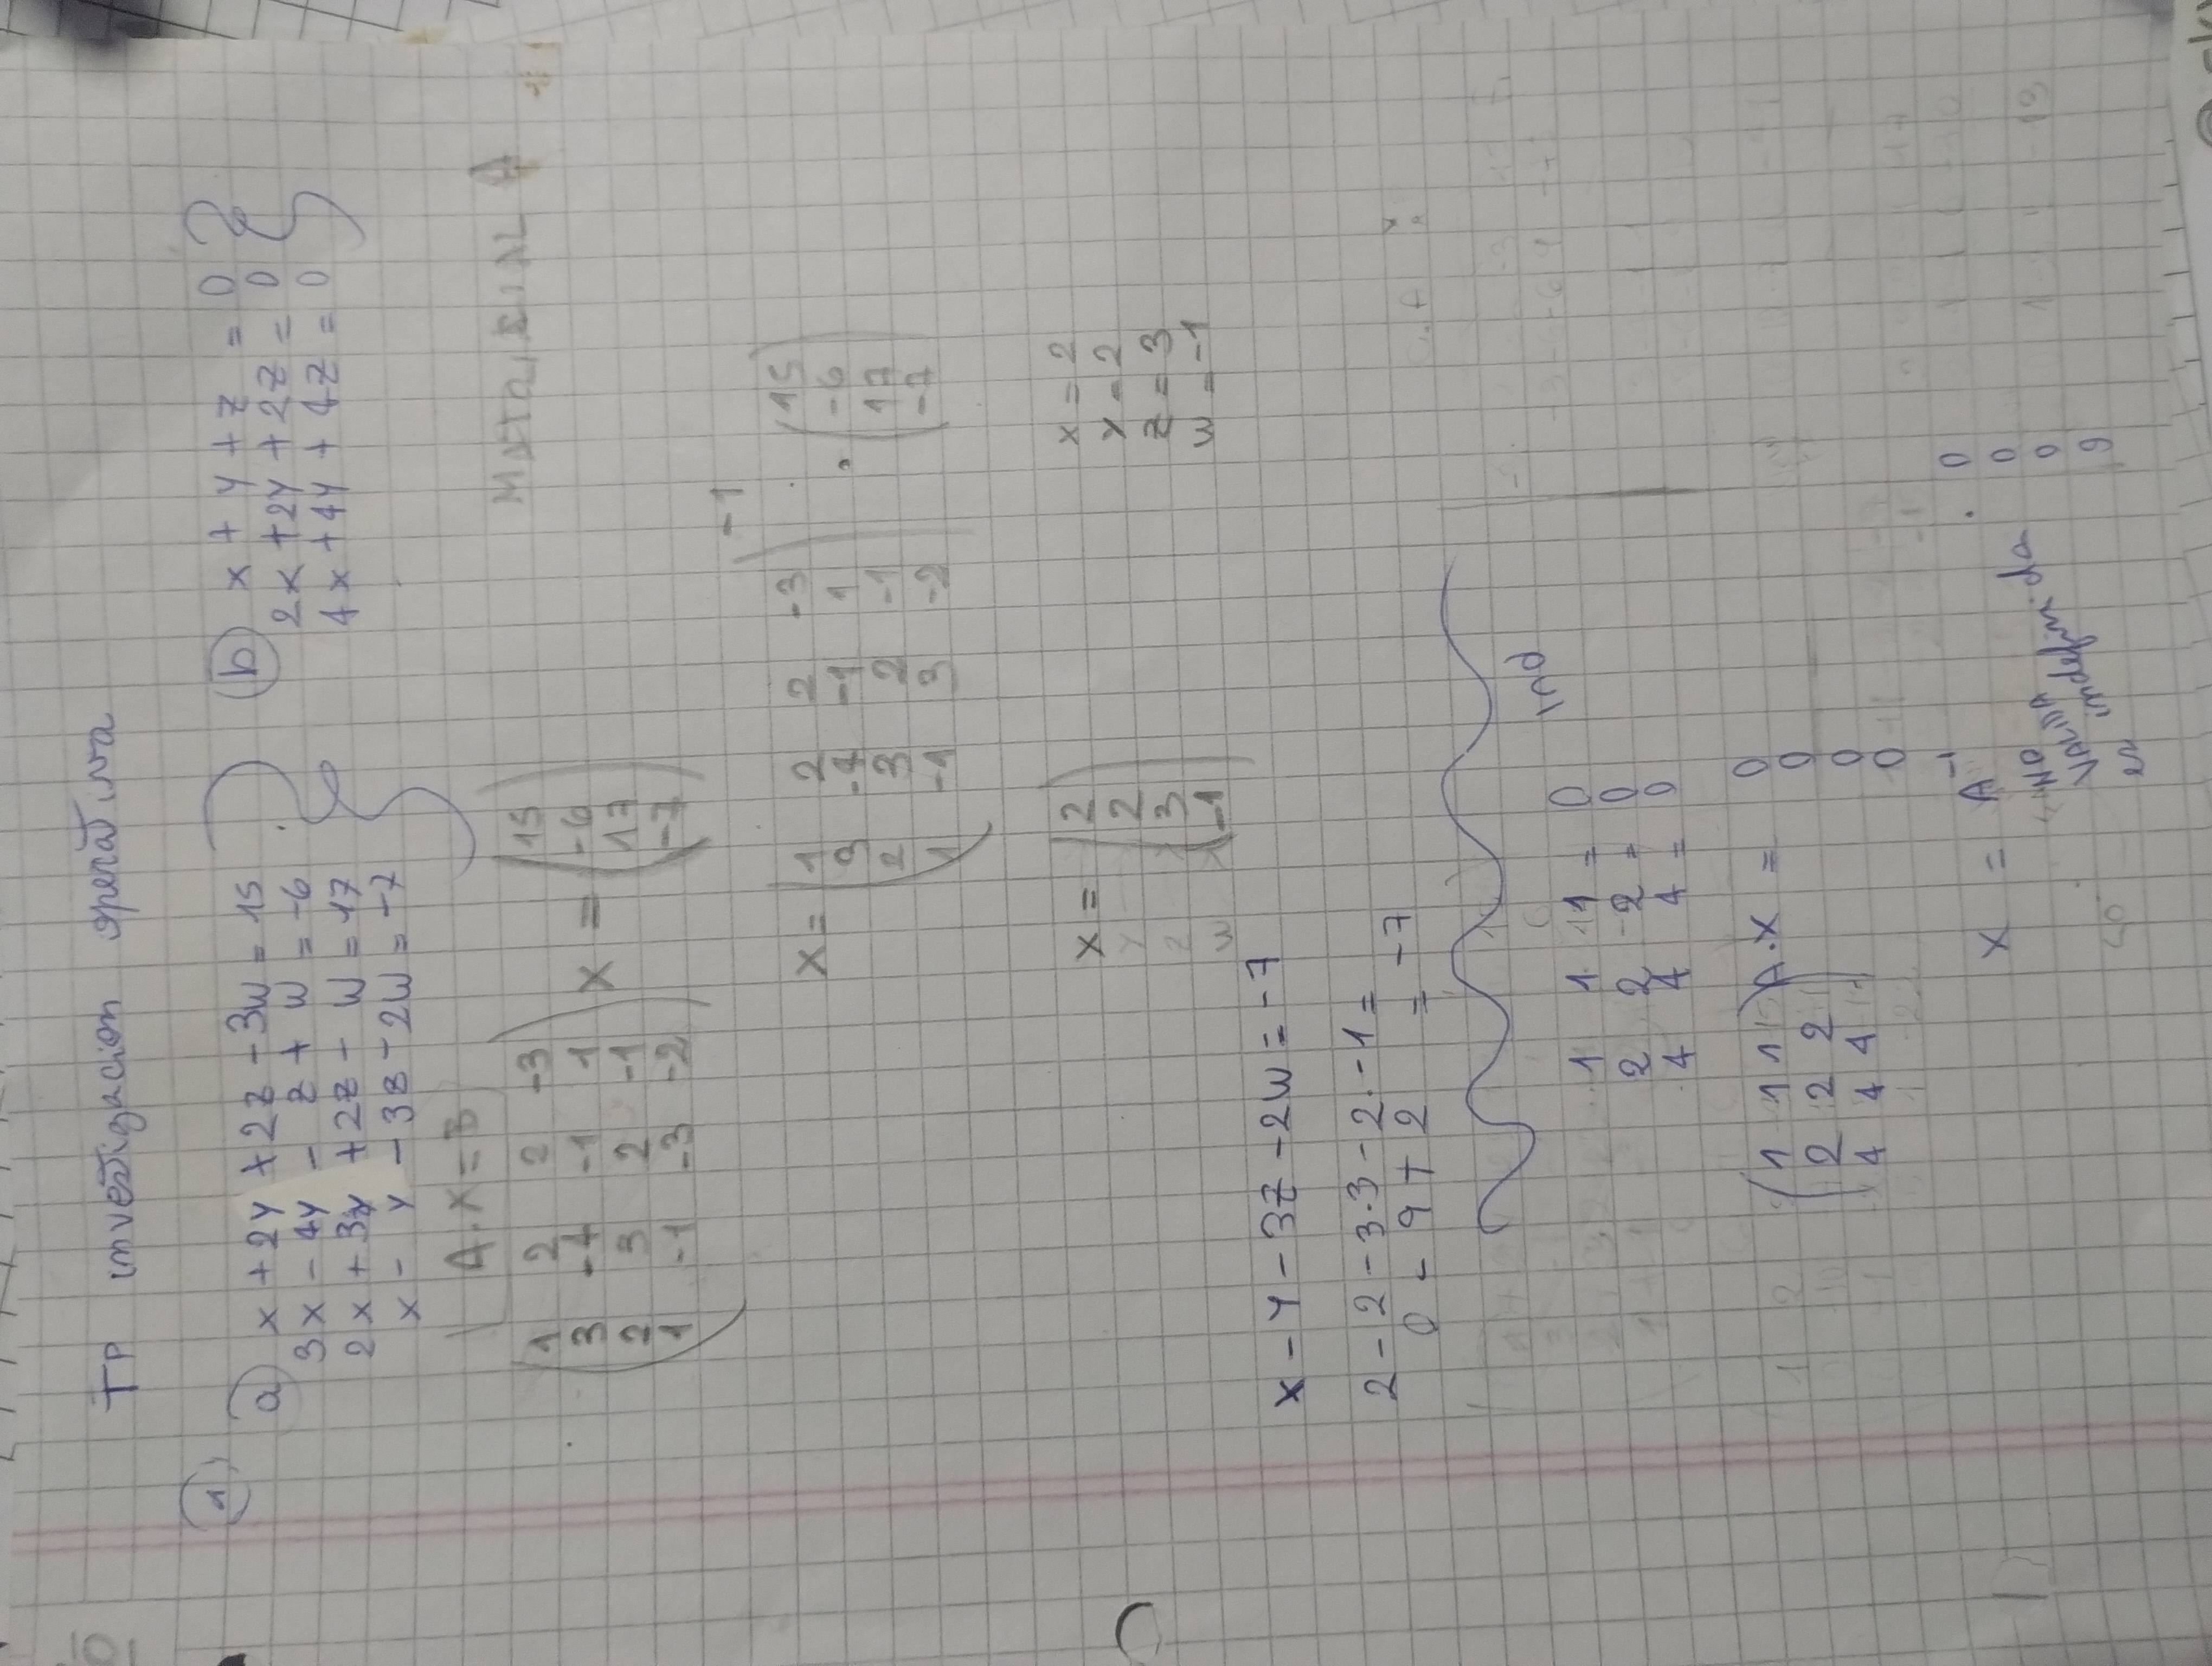 TP investigacion operativa
1)
a) x + 2y + 2z - 3w = 15
3x - 4y - z + w = -6
2x + 3y + 2z - w = 17
x - y - 3z - 2w = -7
b) x + y + z = 0
2x + 2y + 2z = 0
4x + 4y + 4z = 0
A . X = B
MATRICIAL A
1 2 2 -3
3 -4 -1 1
2 3 2 -1
1 -1 -3 -2
X =
15
-6
17
-7
X =
1 2 2 -3
3 -4 -1 1
2 3 2 -1
1 -1 3 -2
-1
.
15
-6
17
-7
X = 2
Y 2
Z 3
W -1
x = 2
y = 2
z = 3
w = -1
x - y - 3z - 2w = -7
2 - 2 - 3.3 - 2. -1 =
0 - 9 + 2 = -7
Ind
1 1 1 = 0
2 2 2 = 0
4 4 4 = 0
(1 1 1) A.X = 0
2 2 2 0
4 4 4 0
0
X = A-1 . 0
0
0
0
NO
VALIDA
es indefinida